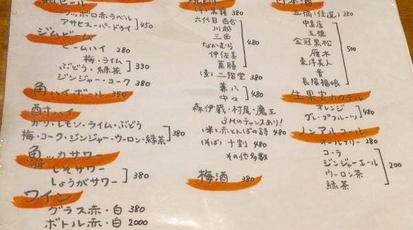 サッポロ赤ラベル
アサヒスーパードライ 450
ジムビーム
ビームハイ 380
梅・ライム
ぶどう・緑茶 330
ジンジャー・コーク 380
角ハイボール 350
酎ハイ
レモン・ライム・ぶどう
梅・コーク・ジンジャー・ウーロン・緑茶 380
サワー
しそサワー
しょうがサワー 380
ワイン
グラス赤・白 380
ボトル赤・白 2000
六代目百合
川郎
三岳
なかむら
伊佐美
萬膳 480
(麦) 二階堂 380
兼八
中々 480
森伊蔵・村尾・魔王
(米) 赤とんぼの詩 480
(そば) 十割 480
その他多数
梅酒 380
金冠黒松
雁木
東洋美人
貴
長陽福娘
500
オレンジ
グレープフルーツ 480
ノンアルコール
オールフリー 380
コーラ
ジンジャーエール
ウーロン茶
緑茶
200